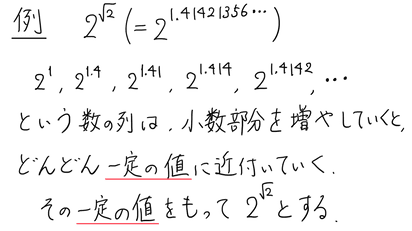 例 2^{√2} (= 2^{1.41421356…})
2^1, 2^{1.4}, 2^{1.41}, 2^{1.414}, 2^{1.4142}, …
という数の列は、小数部分を増やしていくと、
どんどん一定の値に近付いていく.
その一定の値をもって 2^{√2} とする.